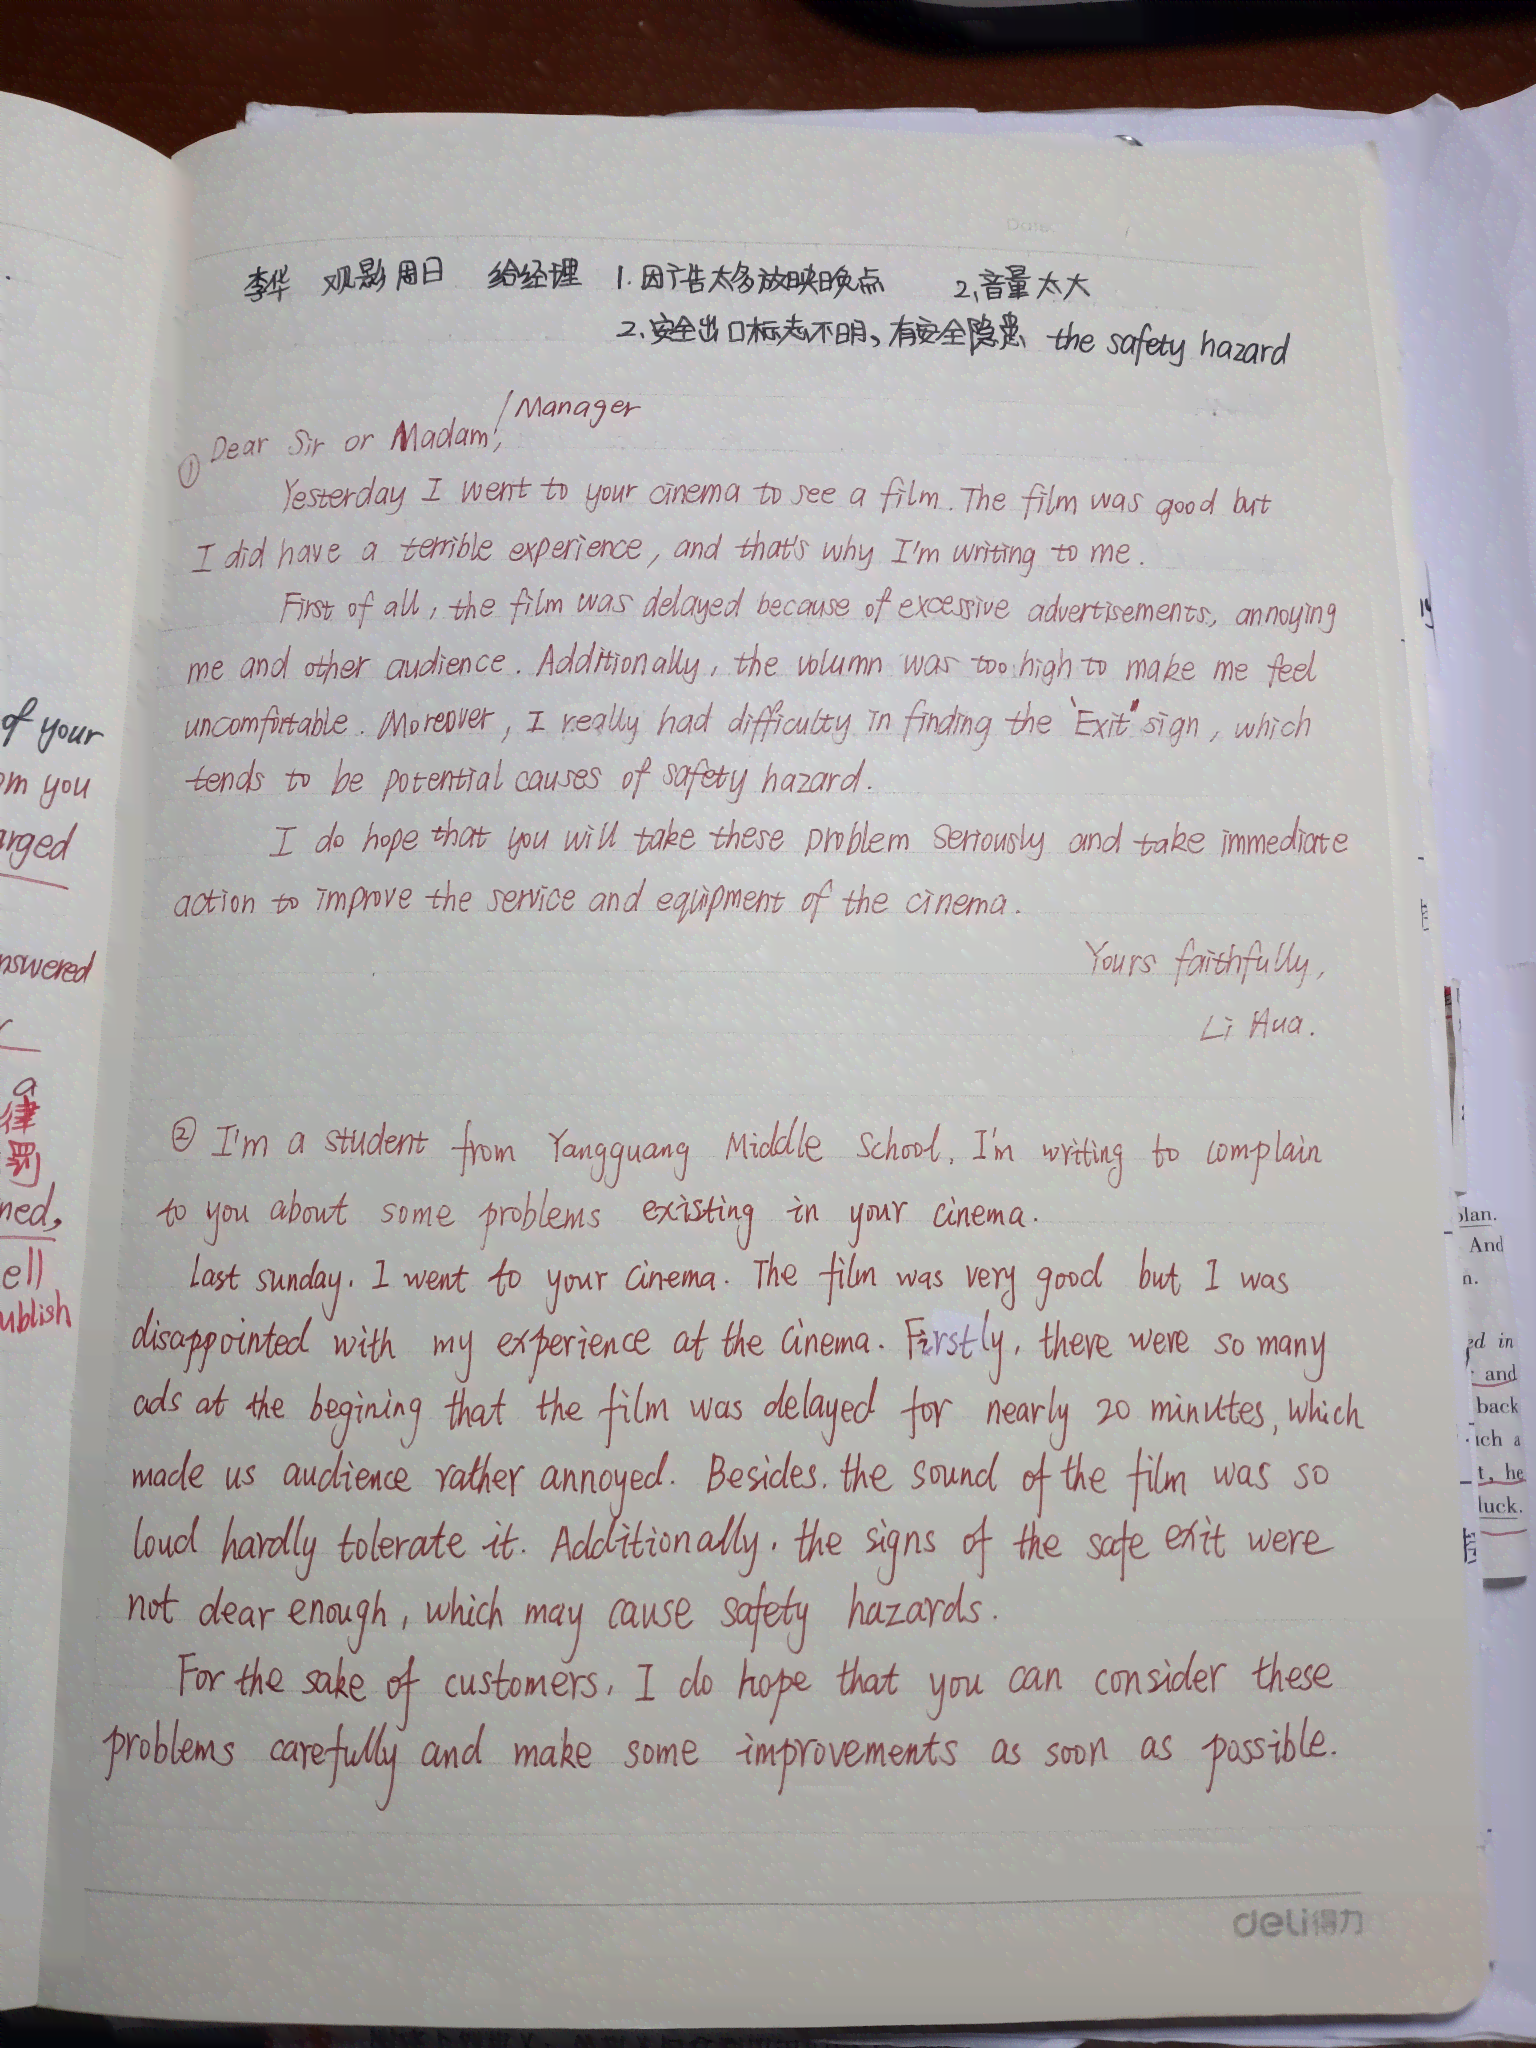 李华 观影周日 给经理 1.因广告太多放映晚点 2.音量太大
2.安全出口标志不明,有安全隐患 the safety hazard
/Manager
① Dear Sir or Madam,
Yesterday I went to your cinema to see a film. The film was good but
I did have a terrible experience, and that's why I'm writing to me.
First of all, the film was delayed because of excessive advertisements, annoying
me and other audience. Additionally, the volumn was too high to make me feel
uncomfortable. Moreover, I really had difficulty in finding the "Exit" sign, which
tends to be potential causes of safety hazard.
I do hope that you will take these problem seriously and take immediate
action to improve the service and equipment of the cinema.
Yours faithfully,
Li Hua.
② I'm a student from Yangguang Middle School, I'm writing to complain
to you about some problems existing in your cinema.
Last sunday, I went to your cinema. The film was very good but I was
disappointed with my experience at the cinema. Firstly, there were so many
ads at the begining that the film was delayed for nearly 20 minutes, which
made us audience rather annoyed. Besides, the sound of the film was so
loud hardly tolerate it. Additionally, the signs of the safe exit were
not clear enough, which may cause safety hazards.
For the sake of customers, I do hope that you can consider these
problems carefully and make some improvements as soon as possible.
deli得力
of your
om you
arged
nswered
a
律
罚
ned,
ell
ublish
plan.
And
n.
ed in
and
back
ich a
t, he
luck.